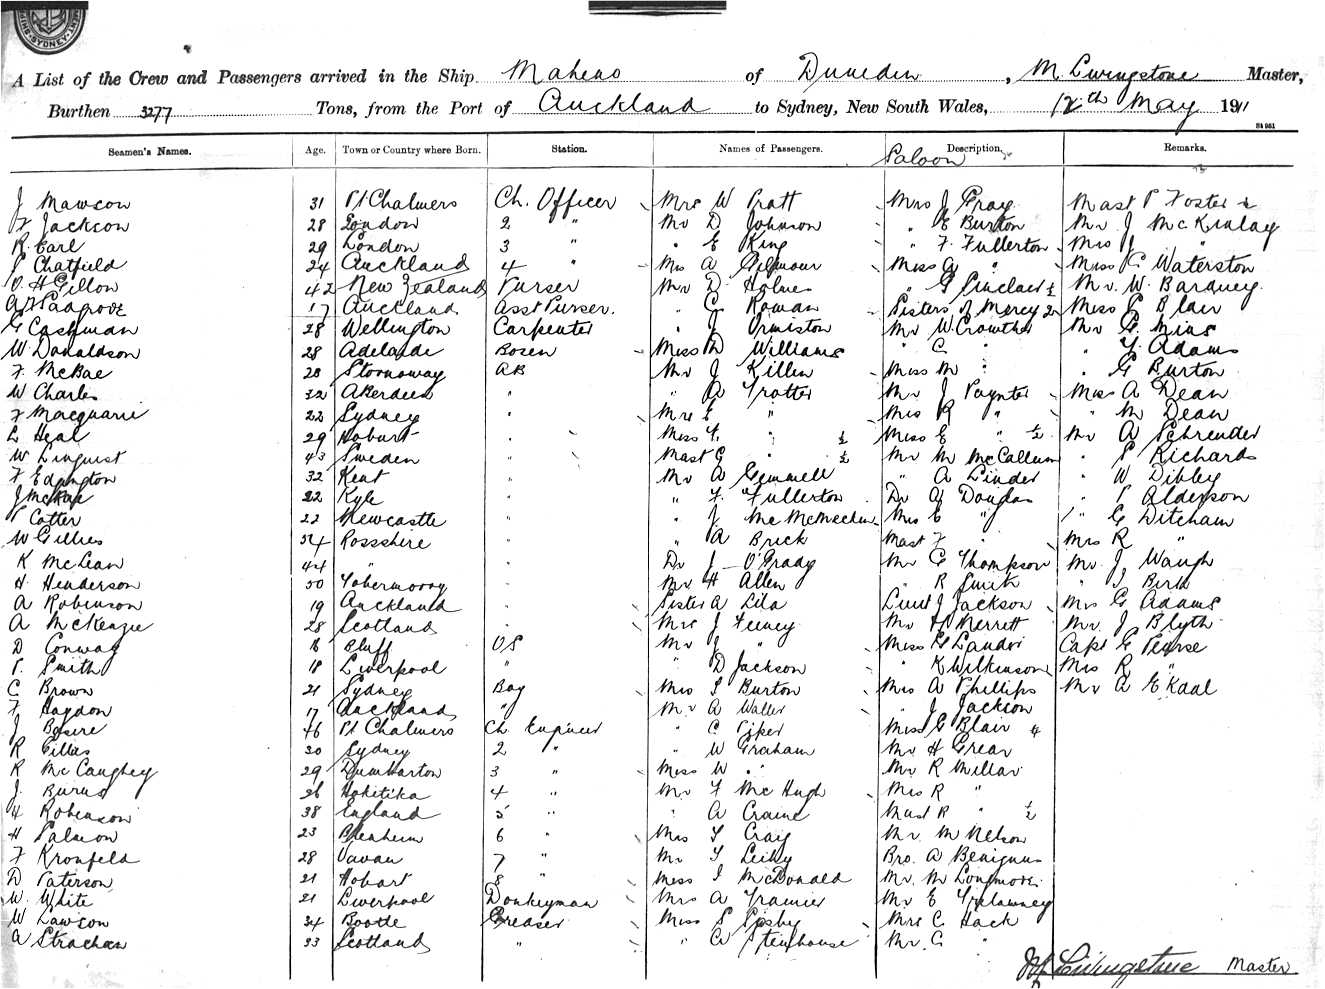 SYDNEY
A List of the Crew and Passengers arrived in the Ship. Maheno of Dunedin, M Livingstone Master,
Burthen 3277 Tons, from the Port of Auckland to Sydney, New South Wales, 12th May 1911
St 981
Seamen's Names. Age. Town or Country where Born. Station. Names of Passengers. Saloon Description. Remarks.
J Mawson 31 Pt Chalmers Ch. Officer Mrs W Pratt Mrs J Gray Mast P Foster ½
F Jackson 28 London 2 " Mr D Johnson " E Burton Mr J McKinlay
R Earl 29 London 3 " " E King " F Fullerton Mrs J "
P Chatfield 24 Auckland 4 " Mrs A Gilmour Miss G " Miss C Waterston
O H Gillon 42 New Zealand Purser Mr D Holmes " G Sinclair ½ Mr. W. Bardney
17 Auckland Asst Purser. " C Rowan Sisters of Mercy 2 Miss G Blair
G Cashman 28 Wellington Carpenter " J Ormiston Mr W Crowther Mr G Mins
W Donaldson 28 Adelaide Bosen Miss M Williams " C " " Y. Adams
F McBae 28 Stornoway AB Mr J Killen Miss M " " G Burton
W Charles 32 Aberdeen " " A Trotter Mr J Poynter Miss A Dean
F Macquarie 22 Sydney " Mrs E " Miss R " " M Dean
L Heal 29 Hobart " Miss F. " ½ Miss E " ½ Mr A Schreuder
W Linquist 43 Sweden " Mast G " ½ Mr M McCallum " S Richards
F Edgington 32 Kent " Mr A Gemmell " A Linder " W Dibley
J McRae 22 Kyle " " F Fullerton Dr G Douglas " P Alderson
P Cotter 22 Newcastle " " J. McMeechin Mrs E " " G Ditcham
W Gillies 34 Rossshire " " A Brick Mast F " Mrs R "
K McLean 44 " " Dr J O'Grady Mr G Thompson Mr J Waugh
H. Henderson 50 Tobermorry " Mr H Allen " R Smith " J Birth
A Robinson 19 Auckland " Sister A Lila Lieut J Jackson Mrs G Adams
A McKenzie 28 Scotland " Mrs J Feeney Mr H Merrett Mr. J Blyth
D Conway 18 Bluff OS Mr J " Miss G Lander Capt G Pearse
P. Smith 18 Liverpool " " D Jackson " K Wilkinson Mrs R "
C Brown 21 Sydney Boy Mrs S Burton Mrs A Phillips Mr A E Kaal
F Haydon 17 Auckland " Mr A Waller " J Jackson
J Bosere 46 Pt Chalmers Ch Engineer " C Piper Miss G Blair
R Gillies 30 Sydney 2 " " W Graham Mr H Grear
R McCaughey 29 Dumbarton 3 " Miss W " Mr R Millar
J. Burns 26 Hokitika 4 " Mr F McHugh Mrs R "
Robinson 38 England 5 " " A Craine Mast R " ½
H Salmon 23 Blenheim 6 " Mrs S Craig Mr. M Nelson
F Kronfeld 28 Vavau 7 " Mr Y Leihy Bro. A Benignus
D Paterson 21 Hobart 8 " Miss I McDonald Mr. M Longmore
W. White 21 Liverpool Donkeyman Mrs A Framier Mr E Trelawney
W Lawson 34 Bootle Greaser Miss S Gipsby Mrs C Hack
A Strachan 33 Scotland " " C Stenhouse Mr. C "
M Livingstone Master